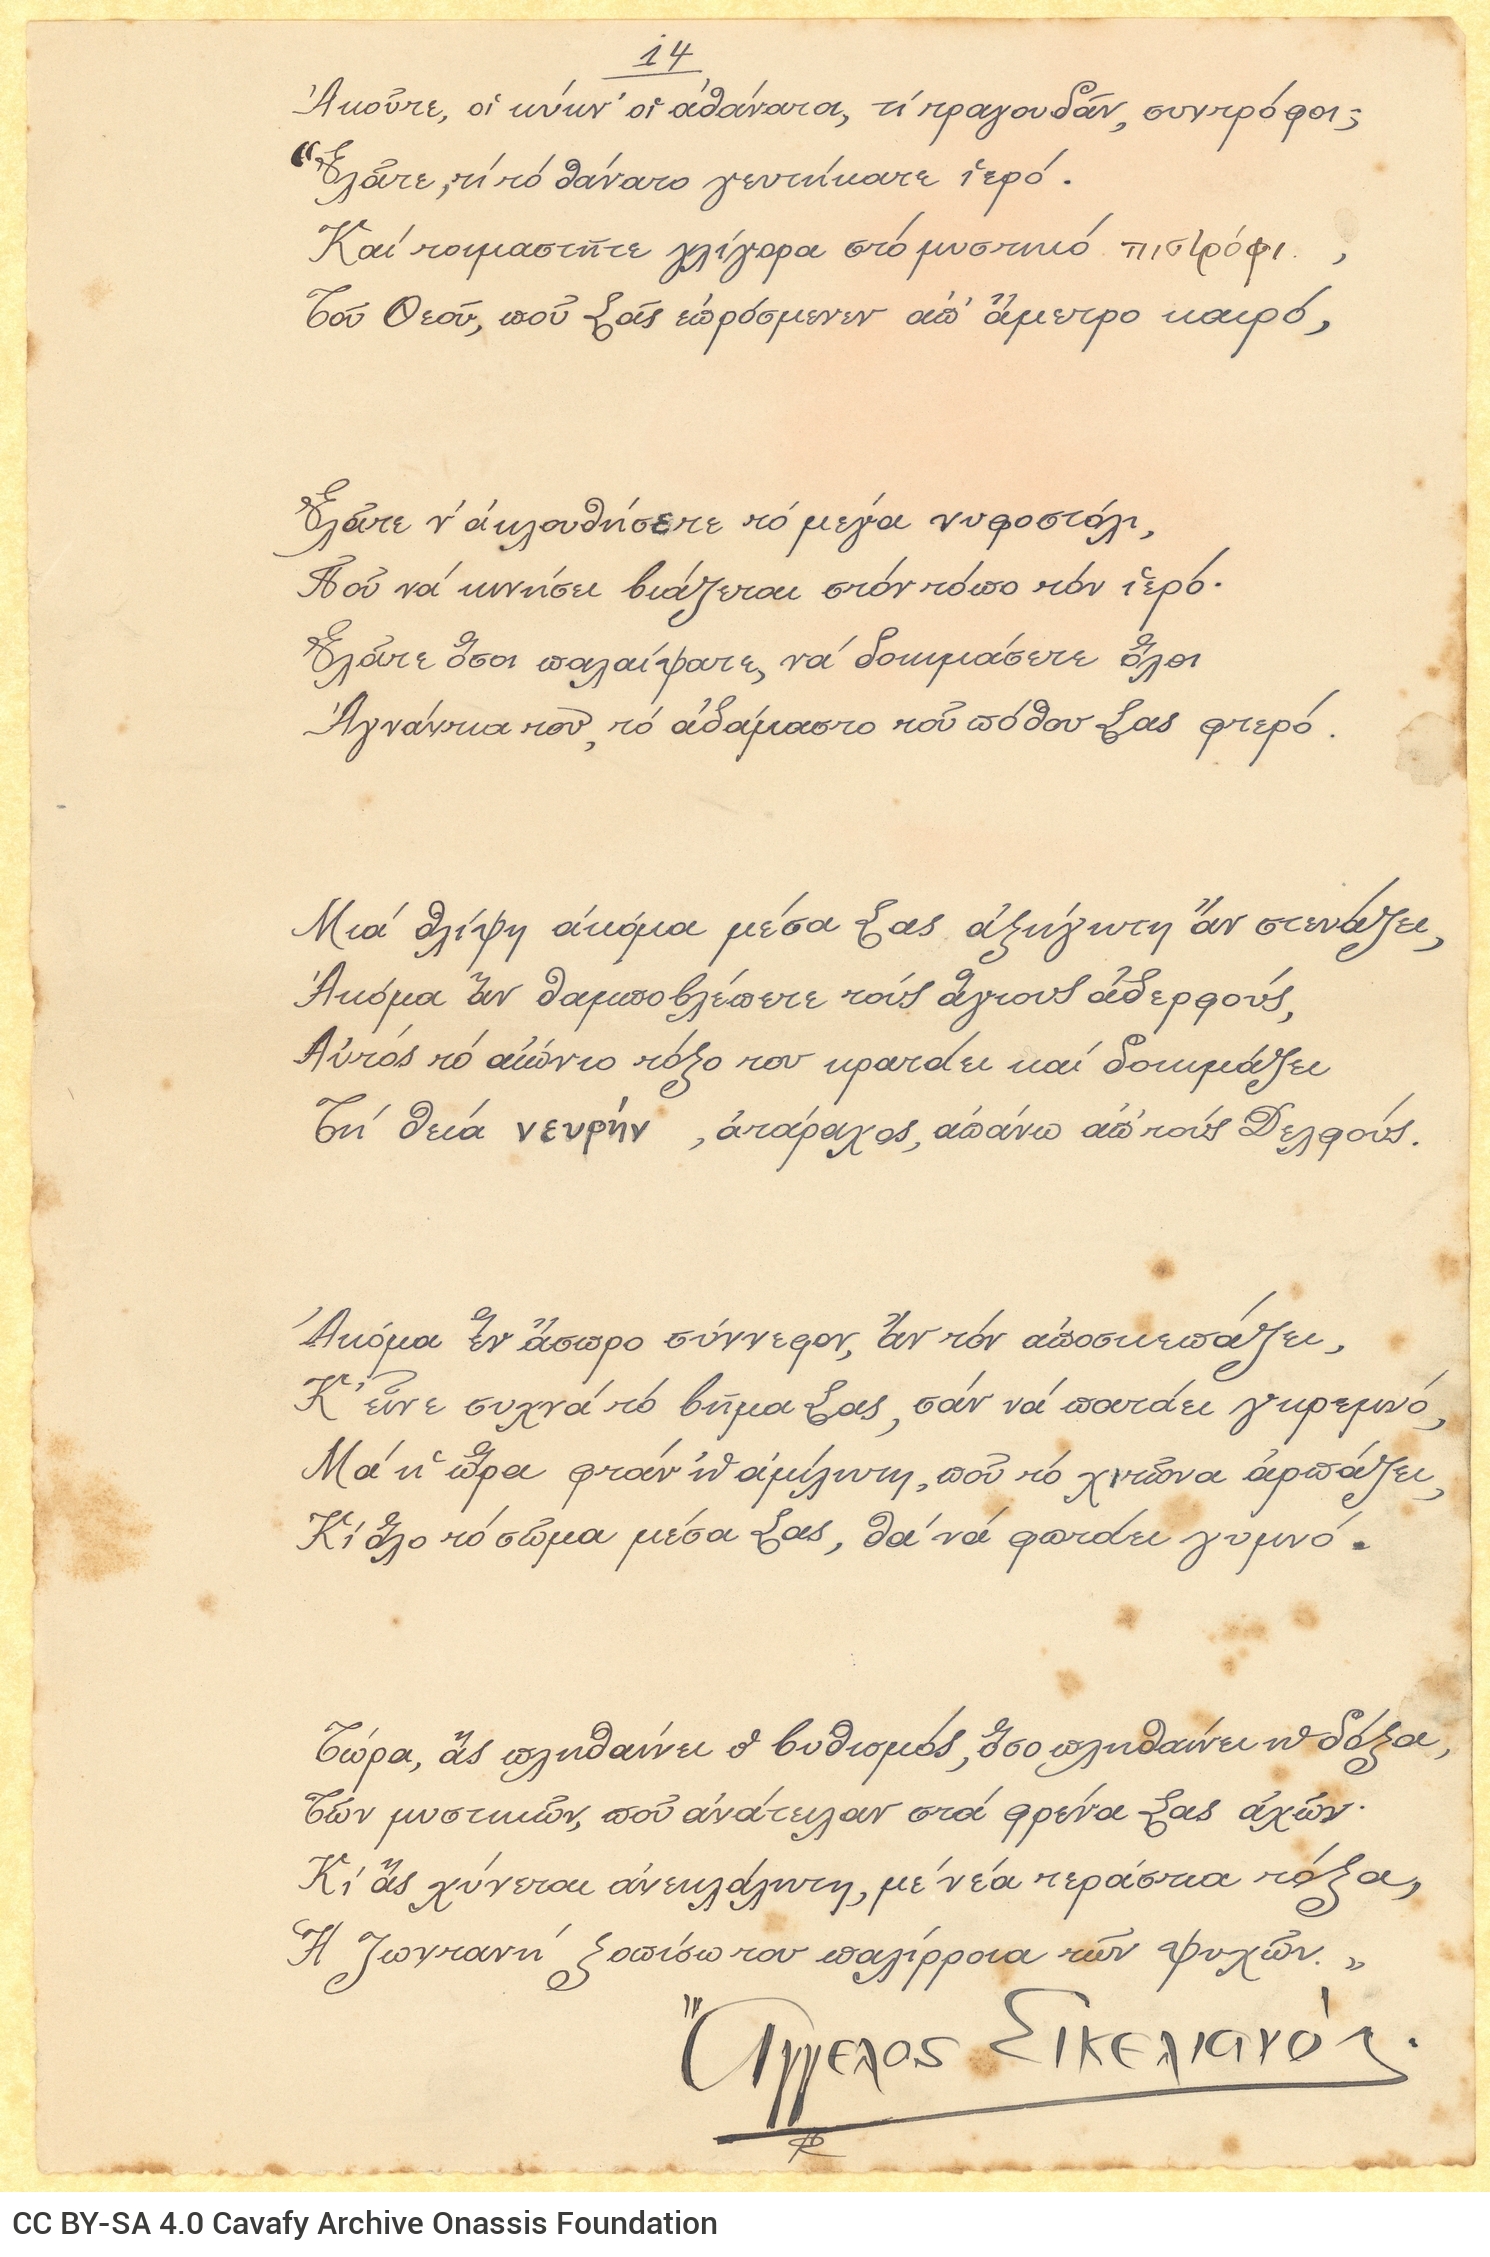 14
Ἀκοῦτε, οἱ κύκν' οἱ ἀθάνατοι, τί τραγουδᾶν, συντρόφοι;
“Ἐλᾶτε, τί τό θάνατο γευτήκατε ἱερό.
Καί τοιμαστῆτε γλίγορα στό μυστικό πιστρόφι ,
Τοῦ Θεοῦ, ποῦ Σᾶς ἐπρόσμενεν ἀπ' ἄμετρο καιρό,
Ἐλᾶτε ν' ἀκλουθήσετε τό μεγά νυφοστόλι,
Ποῦ νά κινήσει βιάζεται στόν τόπο τόν ἱερό·
Ἐλᾶτε ὅσοι παλαίψατε, νά δοκιμάσετε ὅλοι
Ἀγνάντια του, τό ἀδάμαστο τοῦ πόθου Σας φτερό.
Μιά θλίψη ἀκόμα μέσα Σας ἀξήγητη ἄν στενάζει,
Ἀκόμα ἄν θαμποβλέπετε τούς ἅγιους ἀδερφούς,
Αὐτός τό αἰώνιο τόξο του κρατάει καί δοκιμάζει
Τή θειά νευρήν , ἀτάραχος, ἀπάνω ἀπ' τούς Δελφούς.
Ἀκόμα ἕν ἄσπρο σύννεφον, ἄν τόν ἀποσκεπάζει,
Κ' εἶνε συχνά τό βῆμα Σας, σάν νά πατάει γκρεμνό,
Μά ἡ ὥρα φτάν' ἡ ἀμίλητη, ποῦ τό χιτῶνα ἁρπάζει,
Κί ὅλο τό σῶμα μέσα Σας, θά νά φωτάει γυμνό.
Τώρα, ἄς πληθαίνει ὁ βυθισμός, ὅσο πληθαίνει ἡ δόξα,
Τῶν μυστικῶν, ποῦ ἀνάτειλαν στά φρένα Σας ἀχῶν·
Κί ἄς χύνεται ἀνεκλάλητη, μέ νέα τεράστια τόξα,
Ἡ ζωντανή ξοπίσω του παλίρροια τῶν ψυχῶν. „
Ἄγγελος Σικελιανός.
CC BY-SA 4.0 Cavafy Archive Onassis Foundation